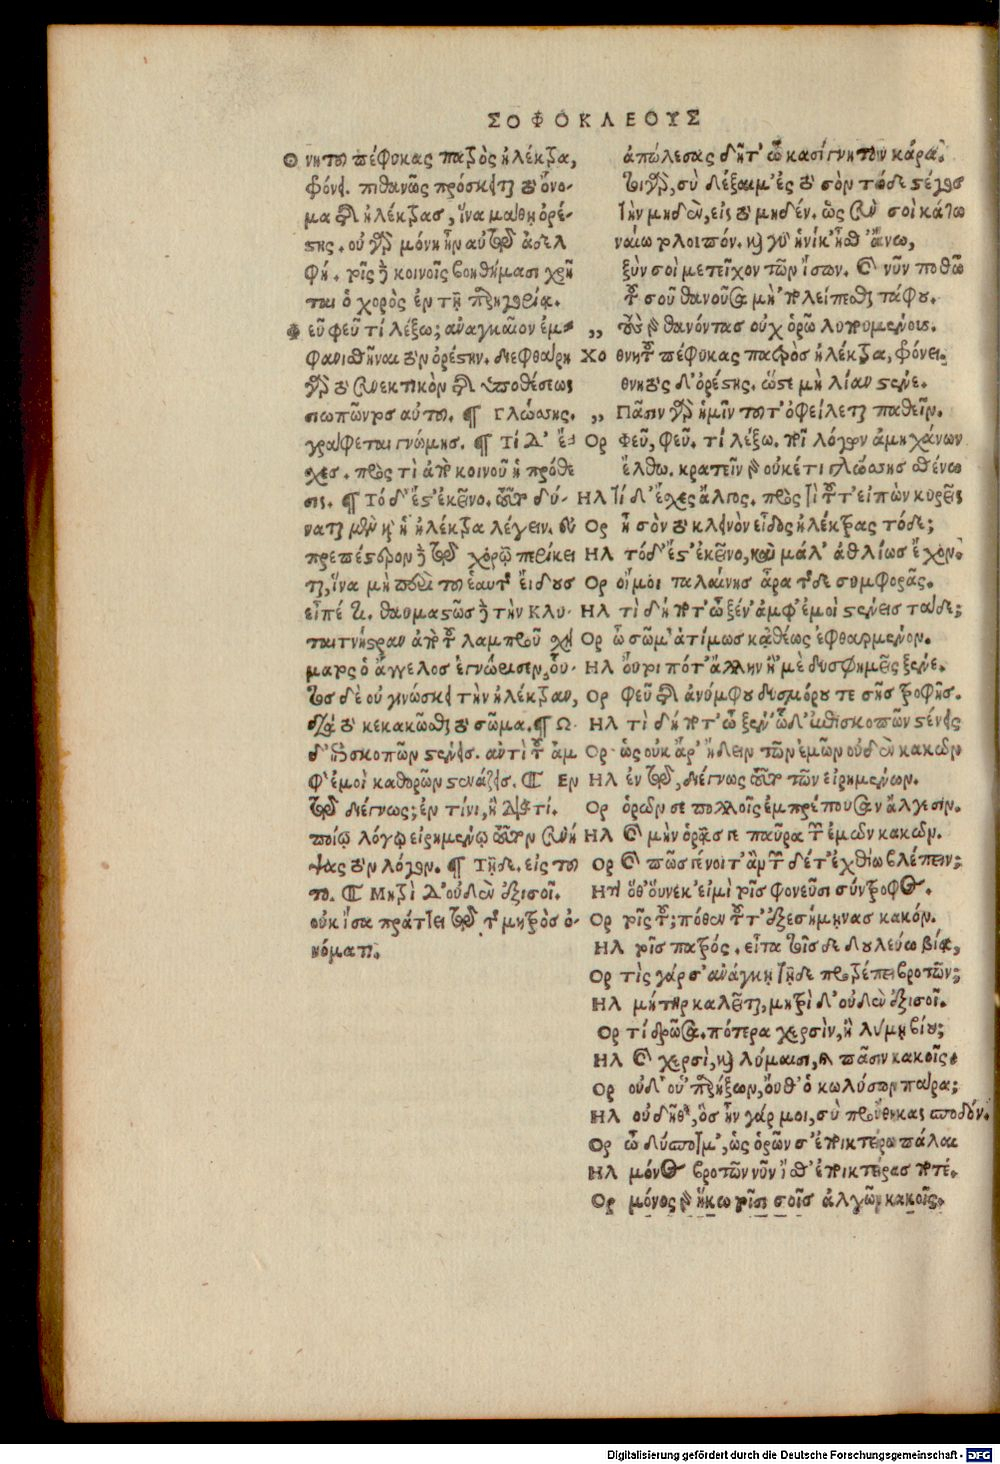 ΣΟΦΟΚΛΕΟΥΣ
Θ νητοῦ πέφυκας πατρὸς ἠλέκτρα,
φρόνει. πιθανῶς πρόσκειται τὸ ὄνο-
μα τῆς ἠλέκτρας, ἵνα μάθῃ ὀρέ-
στης. οὐ γὰρ μόνη ἦν αὐτῷ ἀδελ
φή. τοῖς δὲ κοινοῖς βοηθήμασι χρῆ
ται ὁ χορὸς ἐν τῇ παρηγορίᾳ.
Φ εῦ φεῦ τί λέξω; ἀναγκαῖον ἐμ-
φανισθῆναι τὸν ὀρέστην. διεφθάρη
γὰρ τὸ συνεκτικὸν τῆς ὑποθέσεως
σιωπῶντος αὐτοῦ. ¶ Γλώσσης.
γράφεται γνώμης. ¶ Τί δ' ἔ-
σχες. πρὸς τὶ ἀπὸ κοινοῦ ἡ πρόθε
σις. ¶ Τόδ' ἔστ' ἐκεῖνο. οὕτω δύ-
ναται μὲν καὶ ἡ ἠλέκτρα λέγειν.
πρεπέστερον δὲ τῷ χορῷ περίκει
ται, ἵνα μὴ τοῦτο ἑαυτῆς εἶδος
εἶπέ τις. θαυμαστῶς δὲ τὴν Κλυ-
ταιμνήστραν ἀπὸ τοῦ λαμπροῦ σχή
ματος ὁ ἄγγελος ἐγνώρισεν, οὗ-
τος δὲ οὐ γινώσκει τὴν ἠλέκτραν,
διὰ τὸ κεκακῶσθαι τὸ σῶμα. ¶ Ω-
δ' ἐπισκοπῶν στένεις. ἀντὶ τοῦ ἀμ
φ' ἐμοὶ καθορῶν στενάζεις. ¶ Εν
τῷ διέγνως; ἐν τίνι, ἢ διὰ τί.
ποίῳ λόγῳ εἰρημένῳ οὕτω συνῆ
ψας τὸν λόγον. ¶ Τῇδε. εἰς τοῦ
το. ¶ Μητρὶ δ' οὐδὲν ἐξισοῖ.
οὐκ ἴσα πράττει τῷ τῆς μητρὸς ὀ-
νόματι.
ἀπώλεσας δῆτ' ὦ κασίγνητον κάρα.
τοιγὰρ, σὺ δέξαι μ' ἐς τὸ σὸν τόδε στέγος
τὴν μηδὲν, εἰς τὸ μηδέν. ὡς σὺν σοὶ κάτω
ναίω τὸ λοιπόν. καὶ γὰρ ἡνίκ' ἦσθ' ἄνω,
ξὺν σοὶ μετεῖχον τῶν ἴσων. καὶ νῦν ποθῶ
τοῦ σοῦ θανοῦσα μὴ ἀπολείπεσθαι τάφου.
,, τοὺς γὰρ θανόντας οὐχ ὁρῶ λυπουμένους.
ΧΟ θνητοῦ πέφυκας πατρὸς ἠλέκτρα, φρόνει.
θνητὸς δ' ὀρέστης. ὥστε μὴ λίαν στένε.
,, Πᾶσιν γὰρ ἡμῖν τοῦτ' ὀφείλεται παθεῖν.
Ορ Φεῦ, φεῦ. τί λέξω. ποῖ λόγων ἀμηχάνων
ἔλθω. κρατεῖν γὰρ οὐκέτι γλώσσης σθένω
ΗΛ Τί δ' ἔσχες ἄλγος. πρὸς τί τοῦτ' εἰπὼν κυρεῖς
Ορ ἦ σὸν τὸ κλεινὸν εἶδος ἠλέκτρας τόδε;
ΗΛ τόδ' ἔστ' ἐκεῖνο, καὶ μάλ' ἀθλίως ἔχον.
Ορ οἴμοι ταλαίνης ἆρα τῆσδε συμφορᾶς.
ΗΛ τί δή ποτ' ὦ ξέν' ἀμφ' ἐμοὶ στένεις τάδε;
Ορ ὦ σῶμ' ἀτίμως καθέως ἐφθαρμένον.
ΗΛ οὔτοι πότ' ἄλλην ἢ 'μὲ δυσφημεῖς ξένε.
Ορ φεῦ τῆς ἀνύμφου δυσμόρου τε σῆς τροφῆς.
ΗΛ τί δή ποτ' ὦ ξέν' ὧδ' ἐπισκοπῶν στένεις
Ορ ὡς οὐκ ἄρ' ᾔδειν τῶν ἐμῶν οὐδὲν κακῶν
ΗΛ ἐν τῷ, διέγνως οὕτω τῶν εἰρημένων.
Ορ ὁρῶν σε πολλοῖς ἐμπρέπουσαν ἄλγεσιν.
ΗΛ καὶ μὴν ὁρᾷς γε παῦρα τῶν ἐμῶν κακῶν.
Ορ καὶ πῶς γένοιτ' ἂν τῶνδ' ἔτ' ἐχθίω βλέπειν;
ΗΛ ὁθ' οὕνεκ' εἰμὶ τοῖς φονεῦσι σύντροφος.
Ορ τοῖς τοῦ; πόθεν τοῦτ' ἐξεσήμηνας κακόν.
ΗΛ τοῖς πατρός. εἶτα τοῖσδε δουλεύω βίᾳ,
Ορ τὶς γάρ σ' ἀνάγκῃ τῇδε προτρέπει βροτῶν;
ΗΛ μήτηρ καλεῖται, μητρὶ δ' οὐδὲν ἐξισοῖ.
Ορ τί δρῶσα. πότερα χερσὶν, ἢ λύμῃ βίου;
ΗΛ καὶ χερσὶ, καὶ λύμαισι, καὶ πᾶσιν κακοῖς.
Ορ οὐδ' οὑπαρήξων, οὔθ' ὁ κωλύσων πάρα;
ΗΛ οὐ δῆθ', ὃς ἦν γάρ μοι, σὺ προὔθηκας σποδόν.
Ορ ὦ δύσποτμ', ὡς ὁρῶν σ' ἐποικτείρω πάλαι
ΗΛ μόνος βροτῶν νῦν ἴσθ' ἐποικτείρας ποτέ.
Ορ μόνος γὰρ ἥκω τοῖσι σοῖς ἀλγῶν κακοῖς.
Digitalisierung gefördert durch die Deutsche Forschungsgemeinschaft - DFG